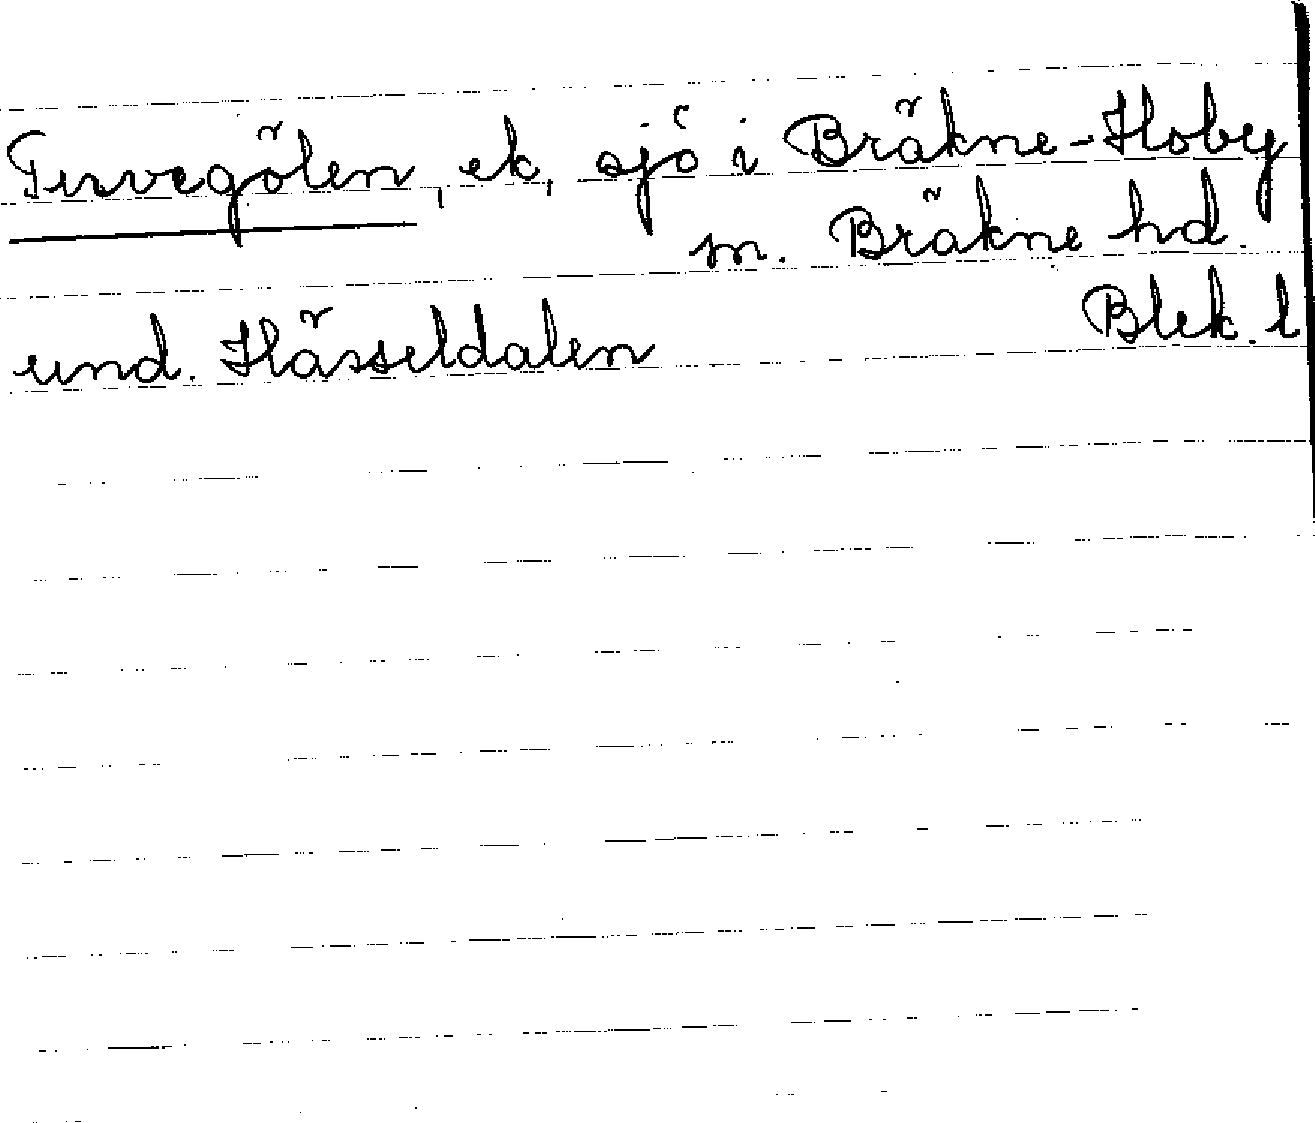 Tervegölen, ek, sjö i Bräkne-Hoby
m. Bräkne hd.
Blek. l
und. Hässeldalen